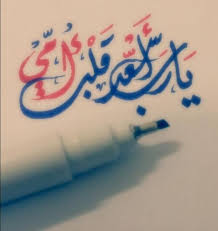 يَارب أسْعد قَلبْ أُمّي